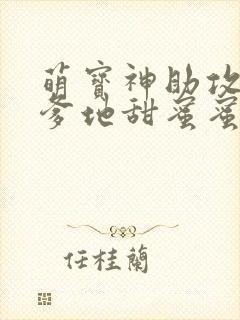 萌寶神助攻
爹地甜蜜蜜
任桂蘭